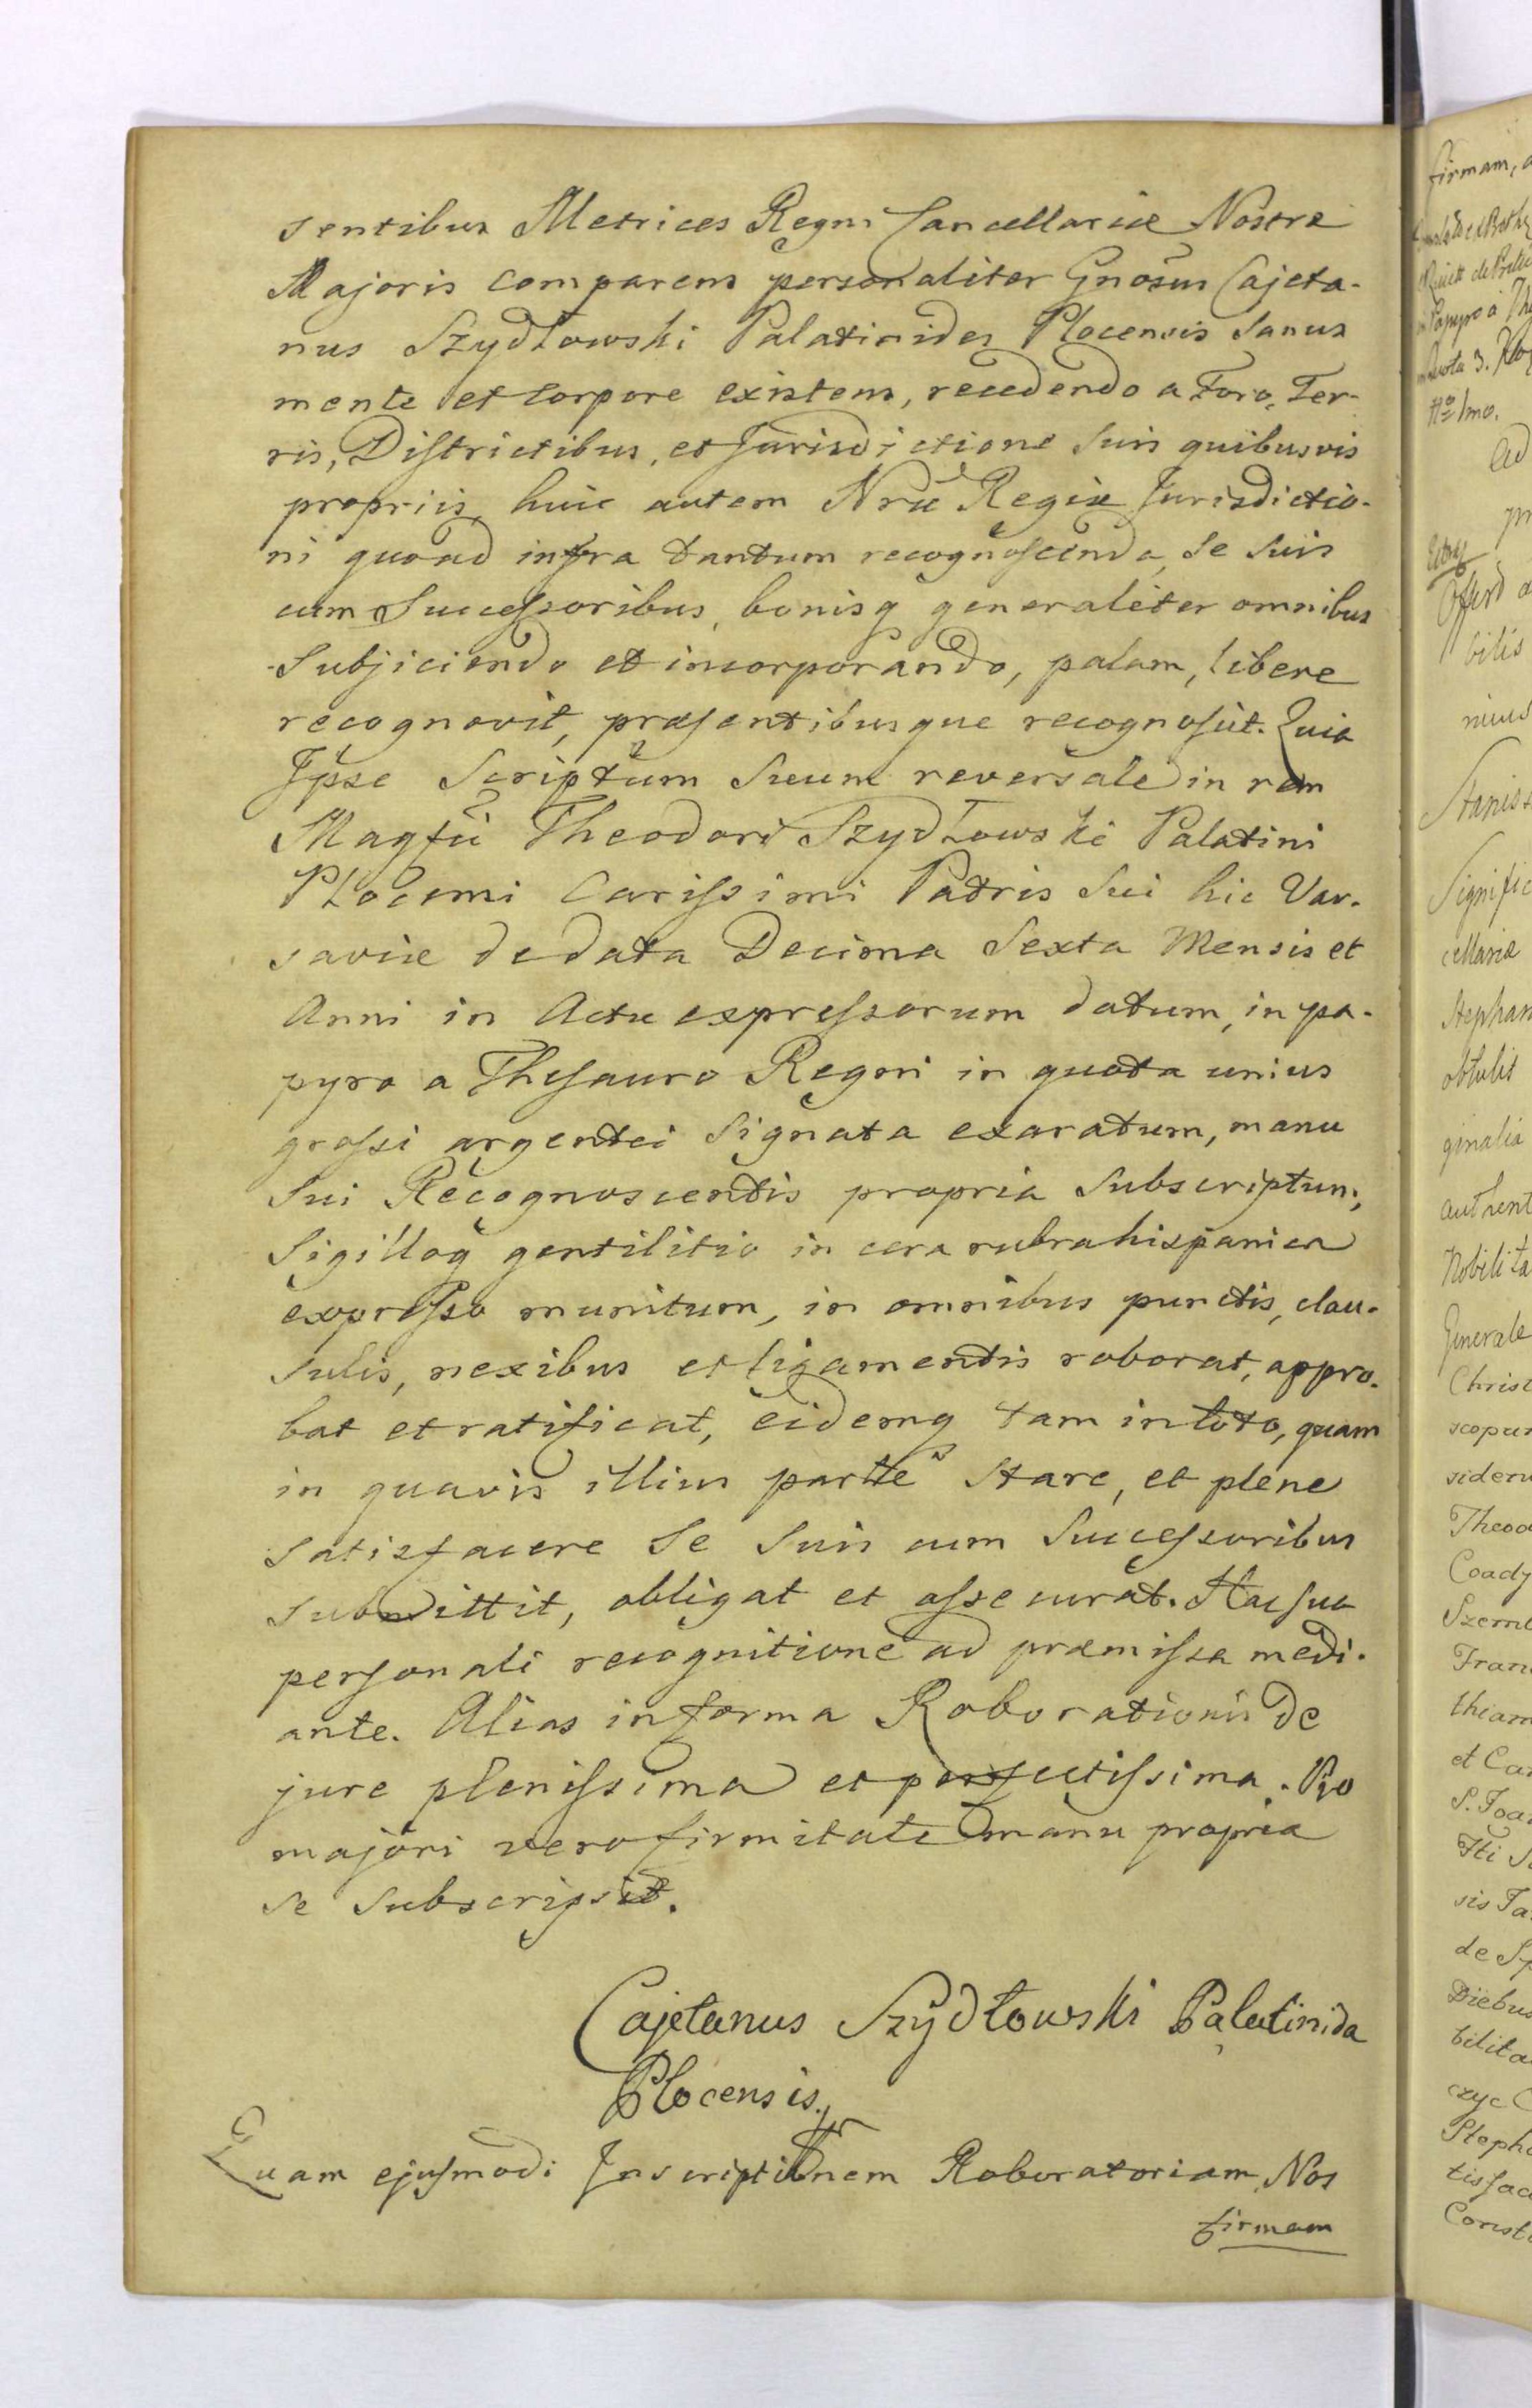 sentibus Metrices Regni Cancellariæ Nostræ
Majoris comparens personaliter Gnosus Cajeta-
nus Szydłowski Palatinides Plocensis Sanus
mente et corpore existens, recedendo a Foro, Ter-
ris, Districtibus, et Jurisdictione Suis quibusvis
propriis, huic autem Nræ Regiæ Jurisdictio-
ni quoad infra tantum recognoscenda, Se Suis
cum Successoribus, bonisq generaliter omnibus
Subjiciendo et incorporando, palam, libere
recognovit, præsentibusque recognoscit. Quia
Ipse Scriptum Suum reversale in rem
Magfci Theodori Szydłowski Palatini
Plocensi Carissimi Patris Sui hic Var-
saviæ de data Decima Sexta Mensis et
Anni in Actu expressorum datum, in pa-
pyro a Thesauro Regni in quota unius
grossi argentei Signata exaratum, manu
Sui Recognoscentis propria Subscriptum,
Sigilloq gentilitio in cera rubra hispanica
expresso munitum, in omnibus punctis, clau-
sulis, nexibus et ligamentis roborat, appro-
bat et ratificat, eidemq tam in toto, quam
in quavis illius parte Stare, et plene
Satisfacere Se Suis cum Successoribus
submittit, obligat et assecurat. Hac sua
personali recognitione ad præmissa medi-
ante. Alias in forma Roborationis de
jure plenissima et perfectissima. Pro
majori vero firmitate manu propria
se Subscripsit.
Cajetanus Szydłowski Palatinida
Plocensis.
Quam ejusmodi Inscriptionem Roboratoriam Nos
firmam
firmam, a
Ad
bilis
nius
Stanis
Signific
cellariæ
Stephan
obtulit
ginalia
authent
Nobilita
Generale
Christ
scopus
sider
Theod
Coadj
Szemb
Fran
thiam
et Ca
S. Joa
sis Ja
de S
Diebus
bilita
czyc C
Steph
tisfac
Const